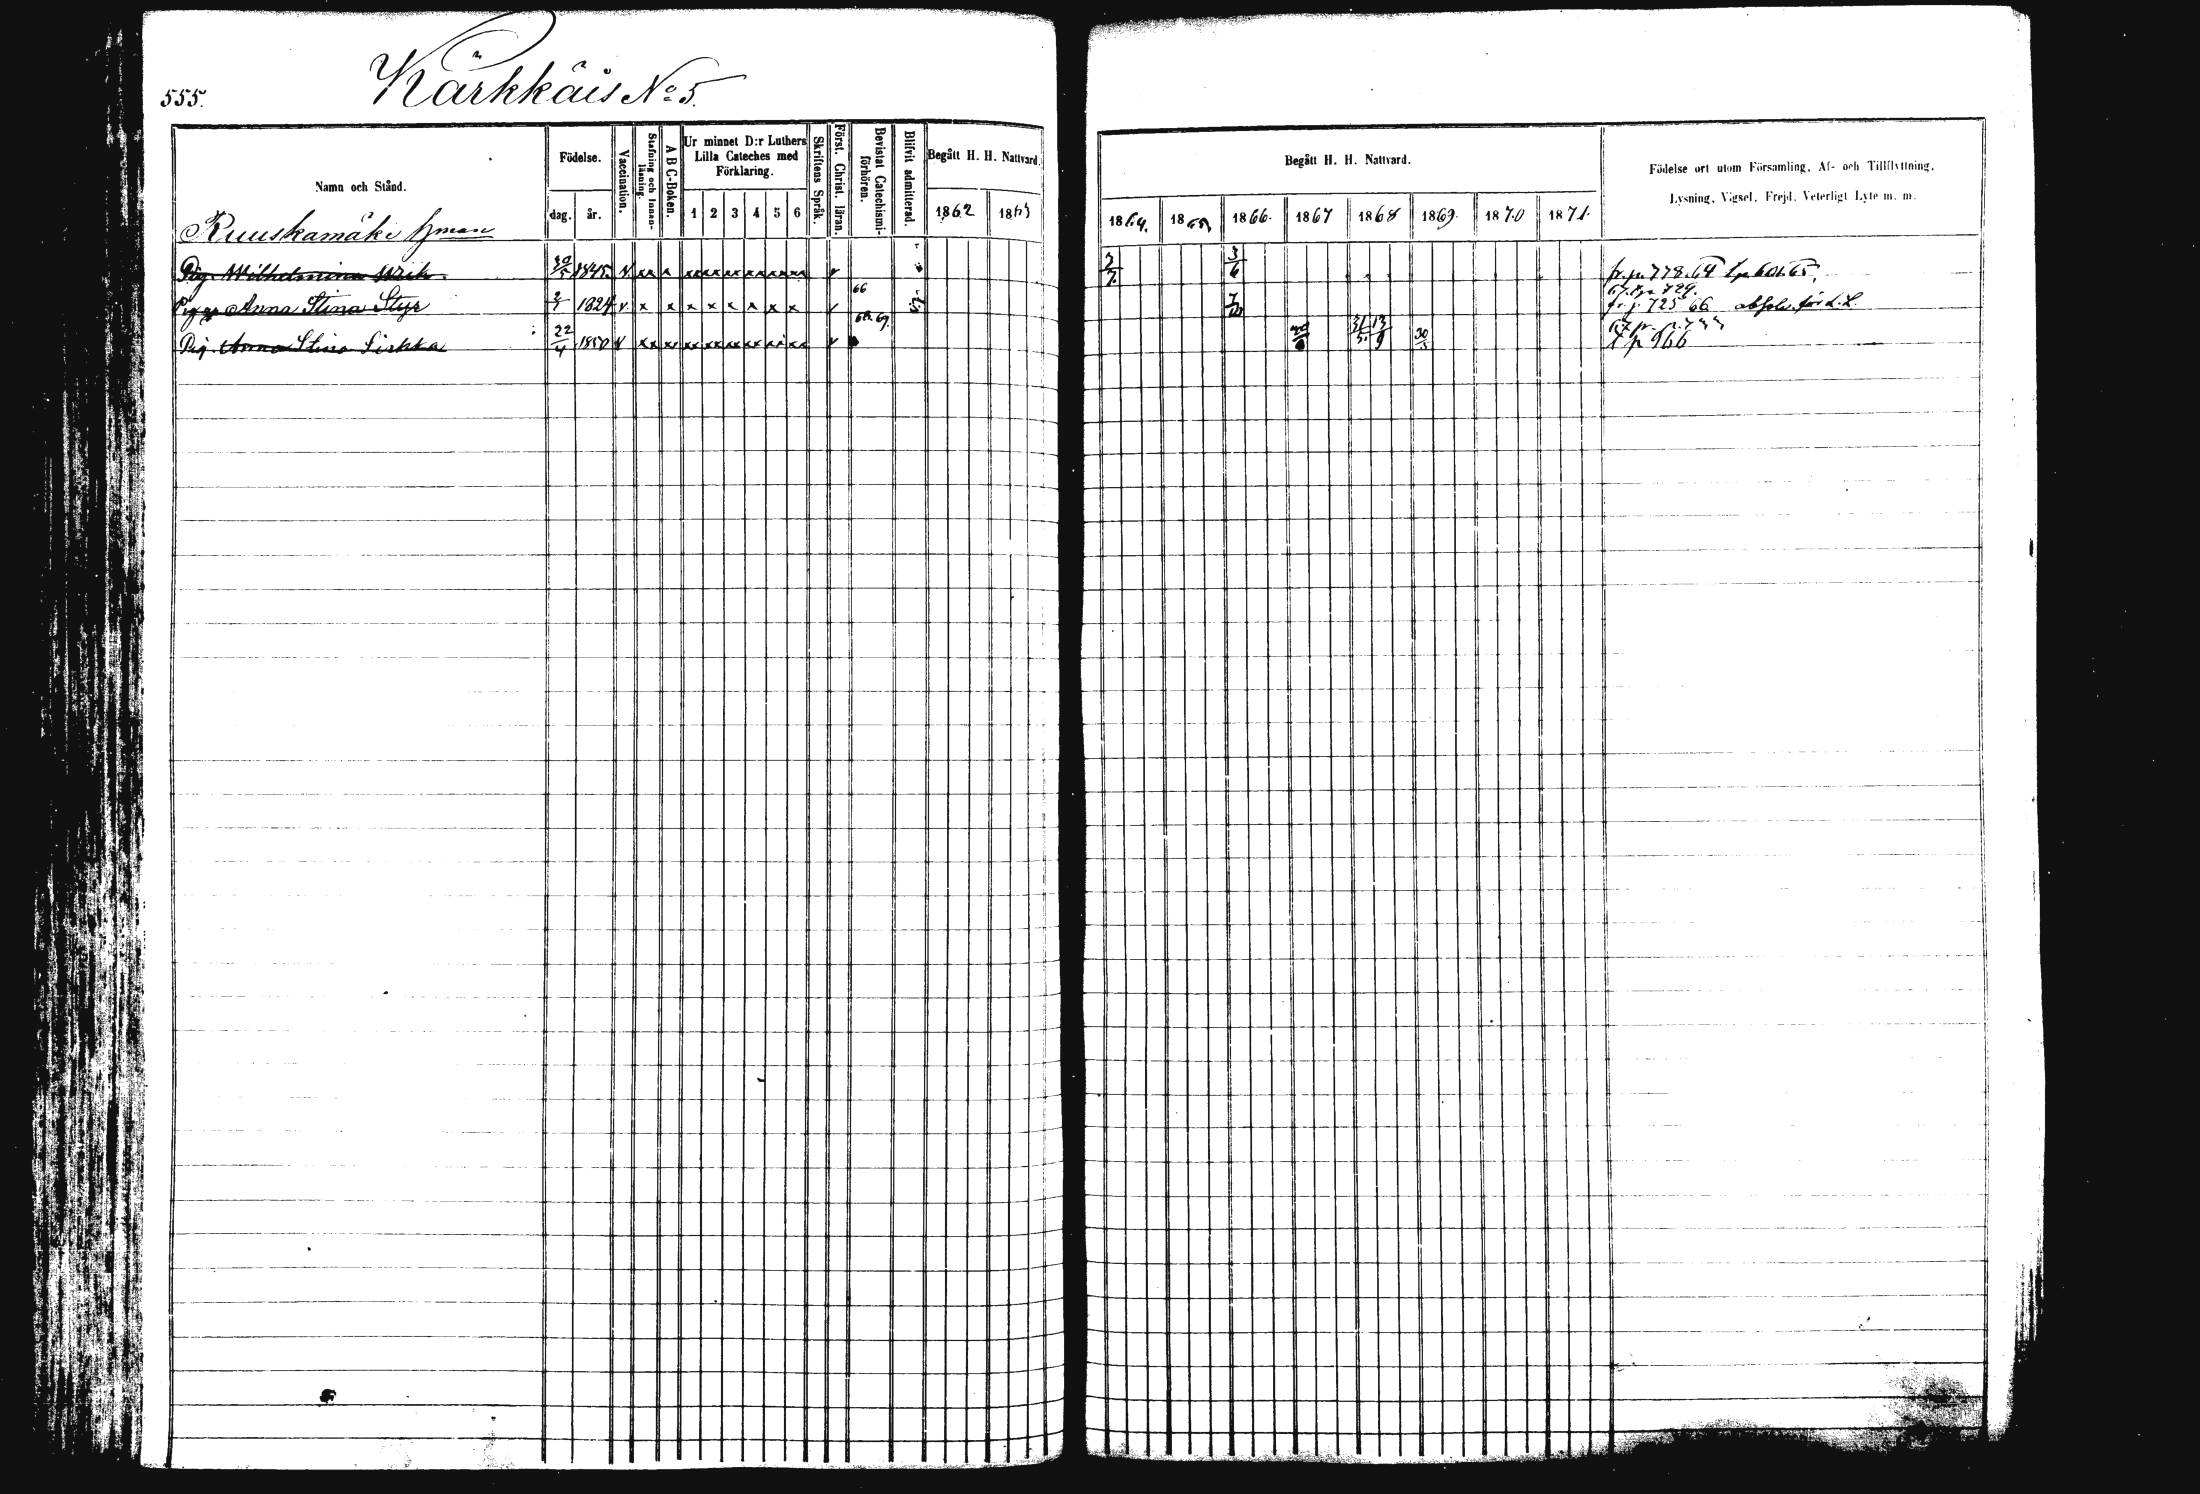 555.
Kärkkäis No 5.
Namn och Stånd.
Födelse.
dag. år.
Vaccination.
Stafning och Innan-läsning.
A B C-Boken.
Ur minnet D:r Luthers Lilla Cateches med Förklaring.
1 2 3 4 5 6
Skriftens Språk.
Först. Christ. läran.
Bevistat Catechismi-förhören.
Blifvit admitterad.
Begått H. H. Nattvard.
1862 1863
Begått H. H. Nattvard.
1864. 1865. 1866. 1867 1868 1869. 1870 1871.
Födelse ort utom Församling, Af- och Tillflyttning,
Lysning, Vigsel, Frejd, Veterligt Lyte m. m.
Ruuskamäki
Pig. Wilhelmina 30/5 1845. v xx x xx xx xx xx xx xx v 7/7. 3/6 fr. p. 778. 64 t. p. 601. 65.
Anna Stina Styr 2/1 1824 v x x x x x x x x v 66 fr. p. 725 66
Pig. Anna Stina Sirkka 22/4 1850 v xx xx xx xx xx xx xx xx v 68. 69. 31/5. 13/9 30/5 t p 966